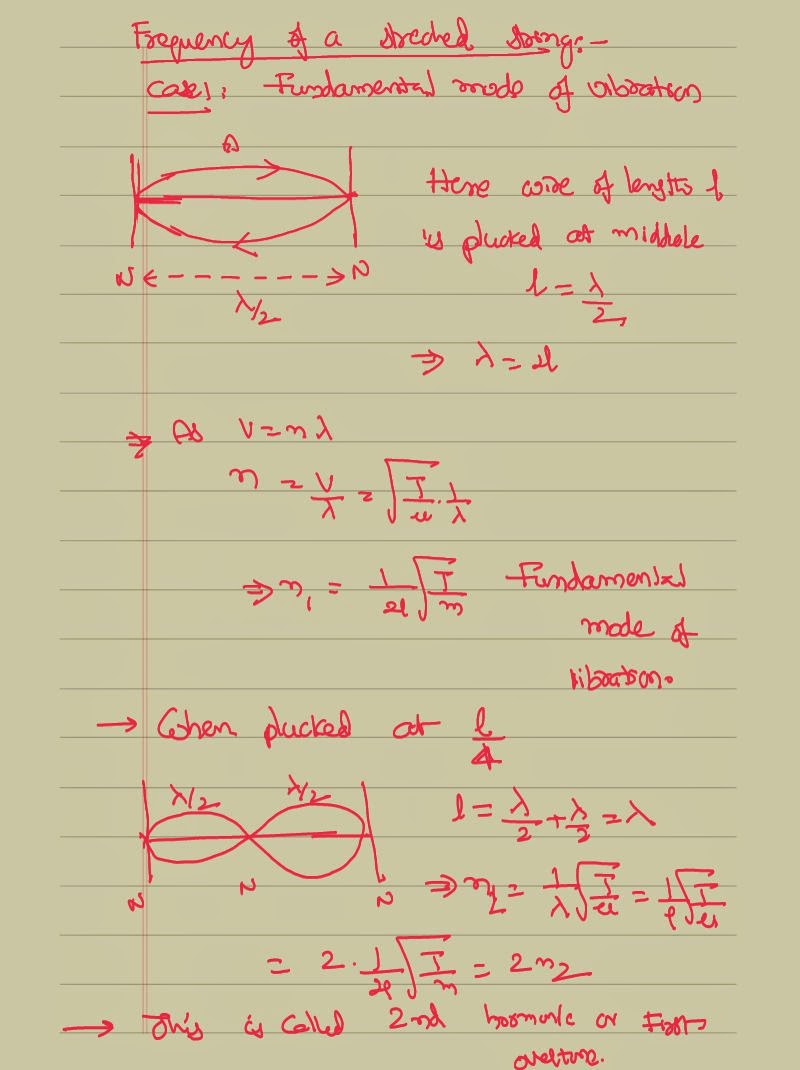 Frequency of a streched string:-
Case 1: Fundamental mode of vibration
A
Here wire of length l
is plucked at middle
N N
λ/2
l = λ/2
⇒ λ = 2l
⇒ As V = nλ
n = V/λ = √(T/u) · 1/λ
⇒ n₁ = 1/2l √(T/m) Fundamental
mode of
vibration.
→ When plucked at l/4
λ/2 λ/2
l = λ/2 + λ/2 = λ
N N N
⇒ n₂ = 1/λ √(T/u) = 1/l √(T/u)
= 2 · 1/2l √(T/m) = 2n₂
→ This is called 2nd harmonic or First
overtune.